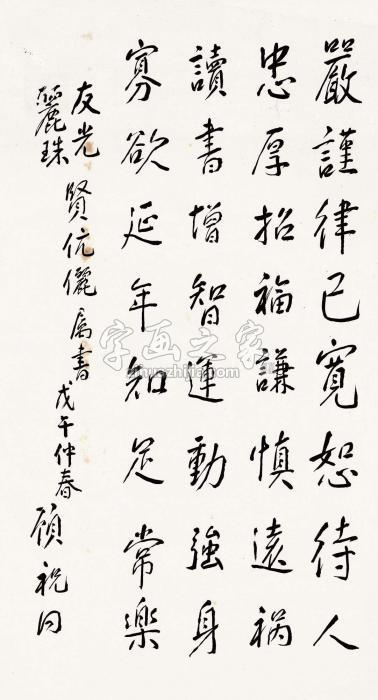 嚴謹律己寬恕待人
忠厚招福謙慎遠祸
讀書增智運動強身
寡欲延年知足常樂
友光
麗珠
賢伉儷属書
戊午仲春
顾祝同
字画之家